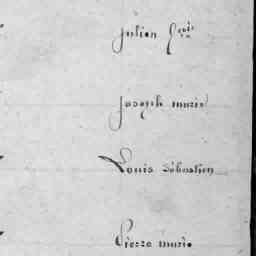 Julien fçois
Joseph marie
Louis Sébastien
Pierre marie